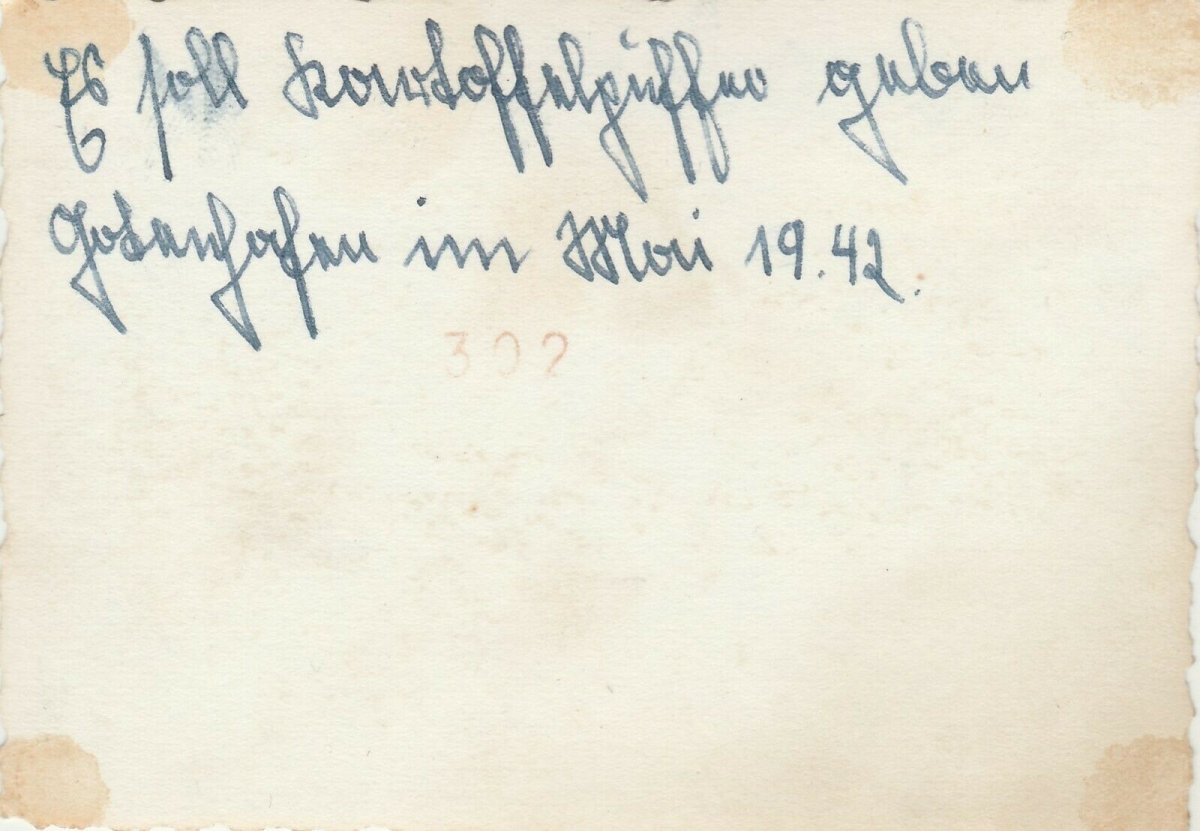 Es soll Kartoffelpuffer geben
Gotenhafen im Mai 19.42.
302